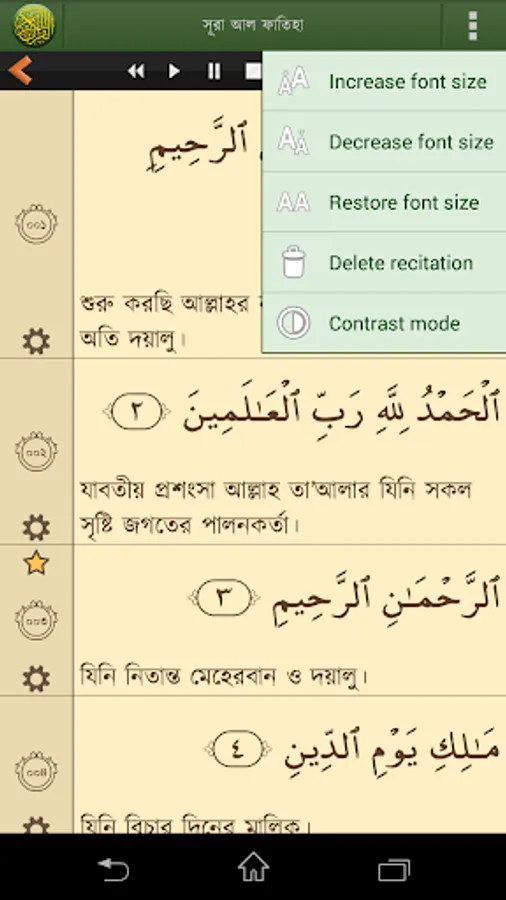 সূরা আল ফাতিহা
Increase font size
Decrease font size
Restore font size
Delete recitation
Contrast mode
ٱلرَّحِيمِ
০০১
শুরু করছি আল্লাহর
অতি দয়ালু।
ٱلْحَمْدُ لِلَّهِ رَبِّ ٱلْعَـٰلَمِينَ ٢
০০২
যাবতীয় প্রশংসা আল্লাহ তা'আলার যিনি সকল
সৃষ্টি জগতের পালনকর্তা।
ٱلرَّحْمَـٰنِ ٱلرَّحِيمِ ٣
০০৩
যিনি নিতান্ত মেহেরবান ও দয়ালু।
مَـٰلِكِ يَوْمِ ٱلدِّينِ ٤
০০৪
যিনি বিচার দিনের মালিক।